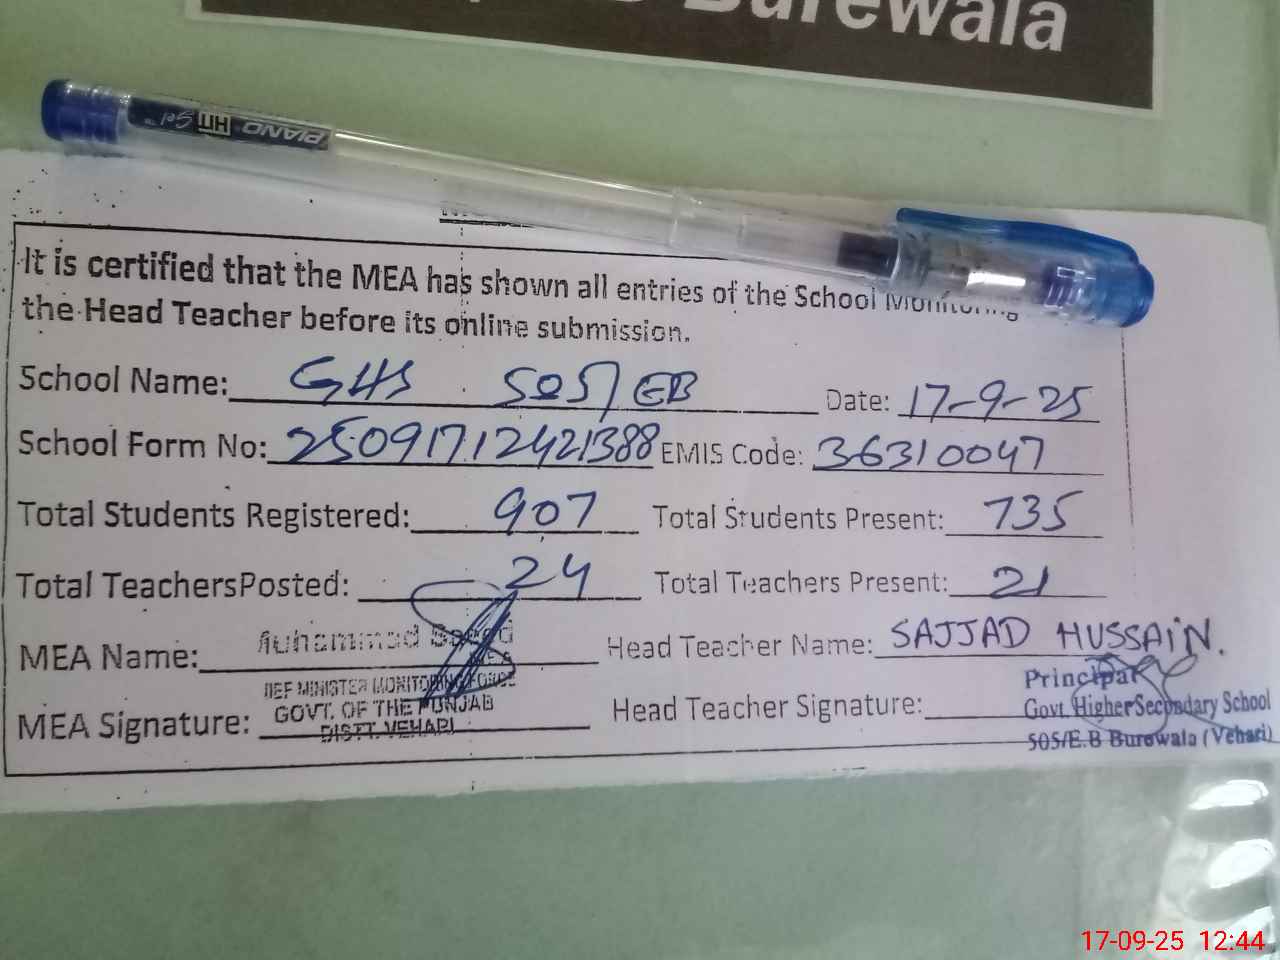 Burewala
PIANO HП Gel
It is certified that the MEA has shown all entries of the School Monitoring
the Head Teacher before its online submission.
School Name: GHS 505/EB Date: 17-9-25
School Form No: 25091712421388 EMIS Code: 36310047
Total Students Registered: 907 Total Students Present: 735
Total TeachersPosted: 24 Total Teachers Present: 21
MEA Name: Muhammad Saeed Head Teacher Name: SAJJAD HUSSAIN.
MEA
MEA Signature: Head Teacher Signature:
CHIEF MINISTER MONITORING FORCE
GOVT. OF THE PUNJAB
DISTT. VEHARI
Principal
Govt. Higher Secondary School
505/E.B Burewala (Vehari)
17-09-25 12:44